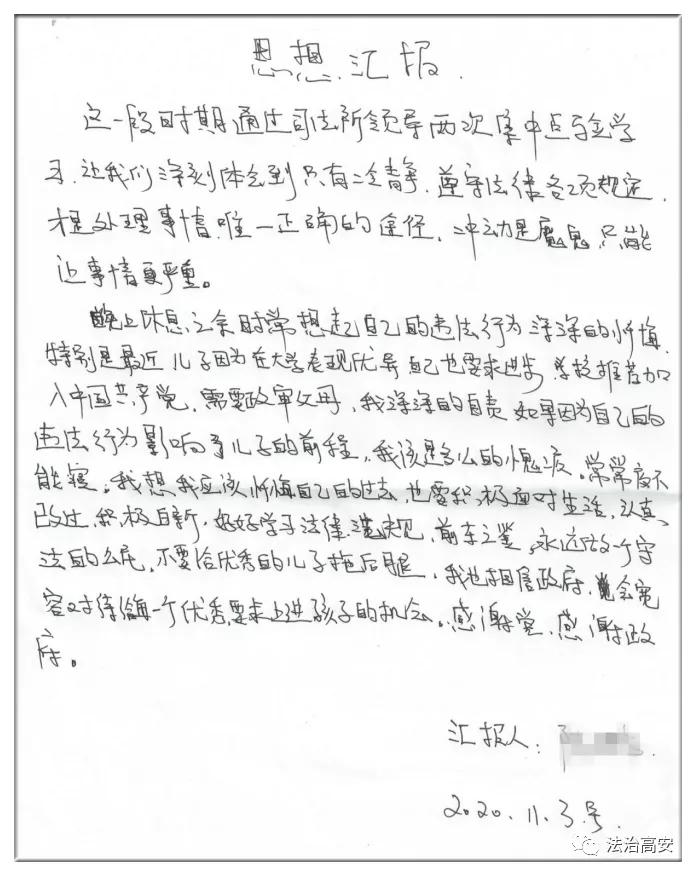 思想汇报.
这一段时期通过司法所领导两次集中点与金学
习.让我们深刻体会到只有冷静.遵守法律各项规定.
才是处理事情.唯一正确的途径.冲动是魔鬼.只能
让事情更严重。
晚上休息之余时常想起自己的违法行为深深的忏悔.
特别是最近儿子因为在大学表现优异自己也要求进步.学校推荐加
入中国共产党.需要政审父母,我深深的自责.如果因为自己的
违法行为影响了儿子的前程,我该是多么的愧疚。常常夜不
能寝。我想我应该忏悔自己的过去,也要积极面对生活,认真
改过,积极自新,好好学习法律法规,前车之鉴,永远做一个守
法的公民,不要给优秀的儿子拖后腿,我也相信政府,会宽
容对待每一个优秀要求上进孩子的机会。感谢党.感谢政
府。
汇报人:
2020.11.3号.
法治高安